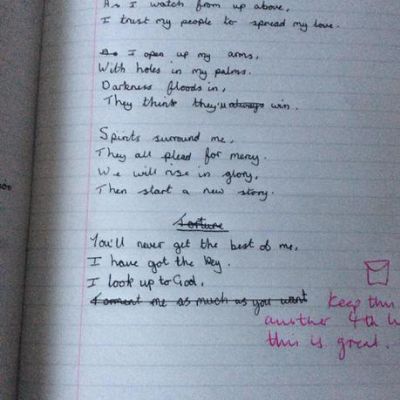 As I watch from up above,
I trust my people to spread my love.
As I open up my arms,
With holes in my palms.
Darkness floods in,
They think they'll always win.
Spirits surround me,
They all plead for mercy.
We will rise in glory,
Then start a new story.
Torture
You'll never get the best of me,
I have got the key.
I look up to God,
Torment me as much as you want
Keep this
another 4th
this is great.